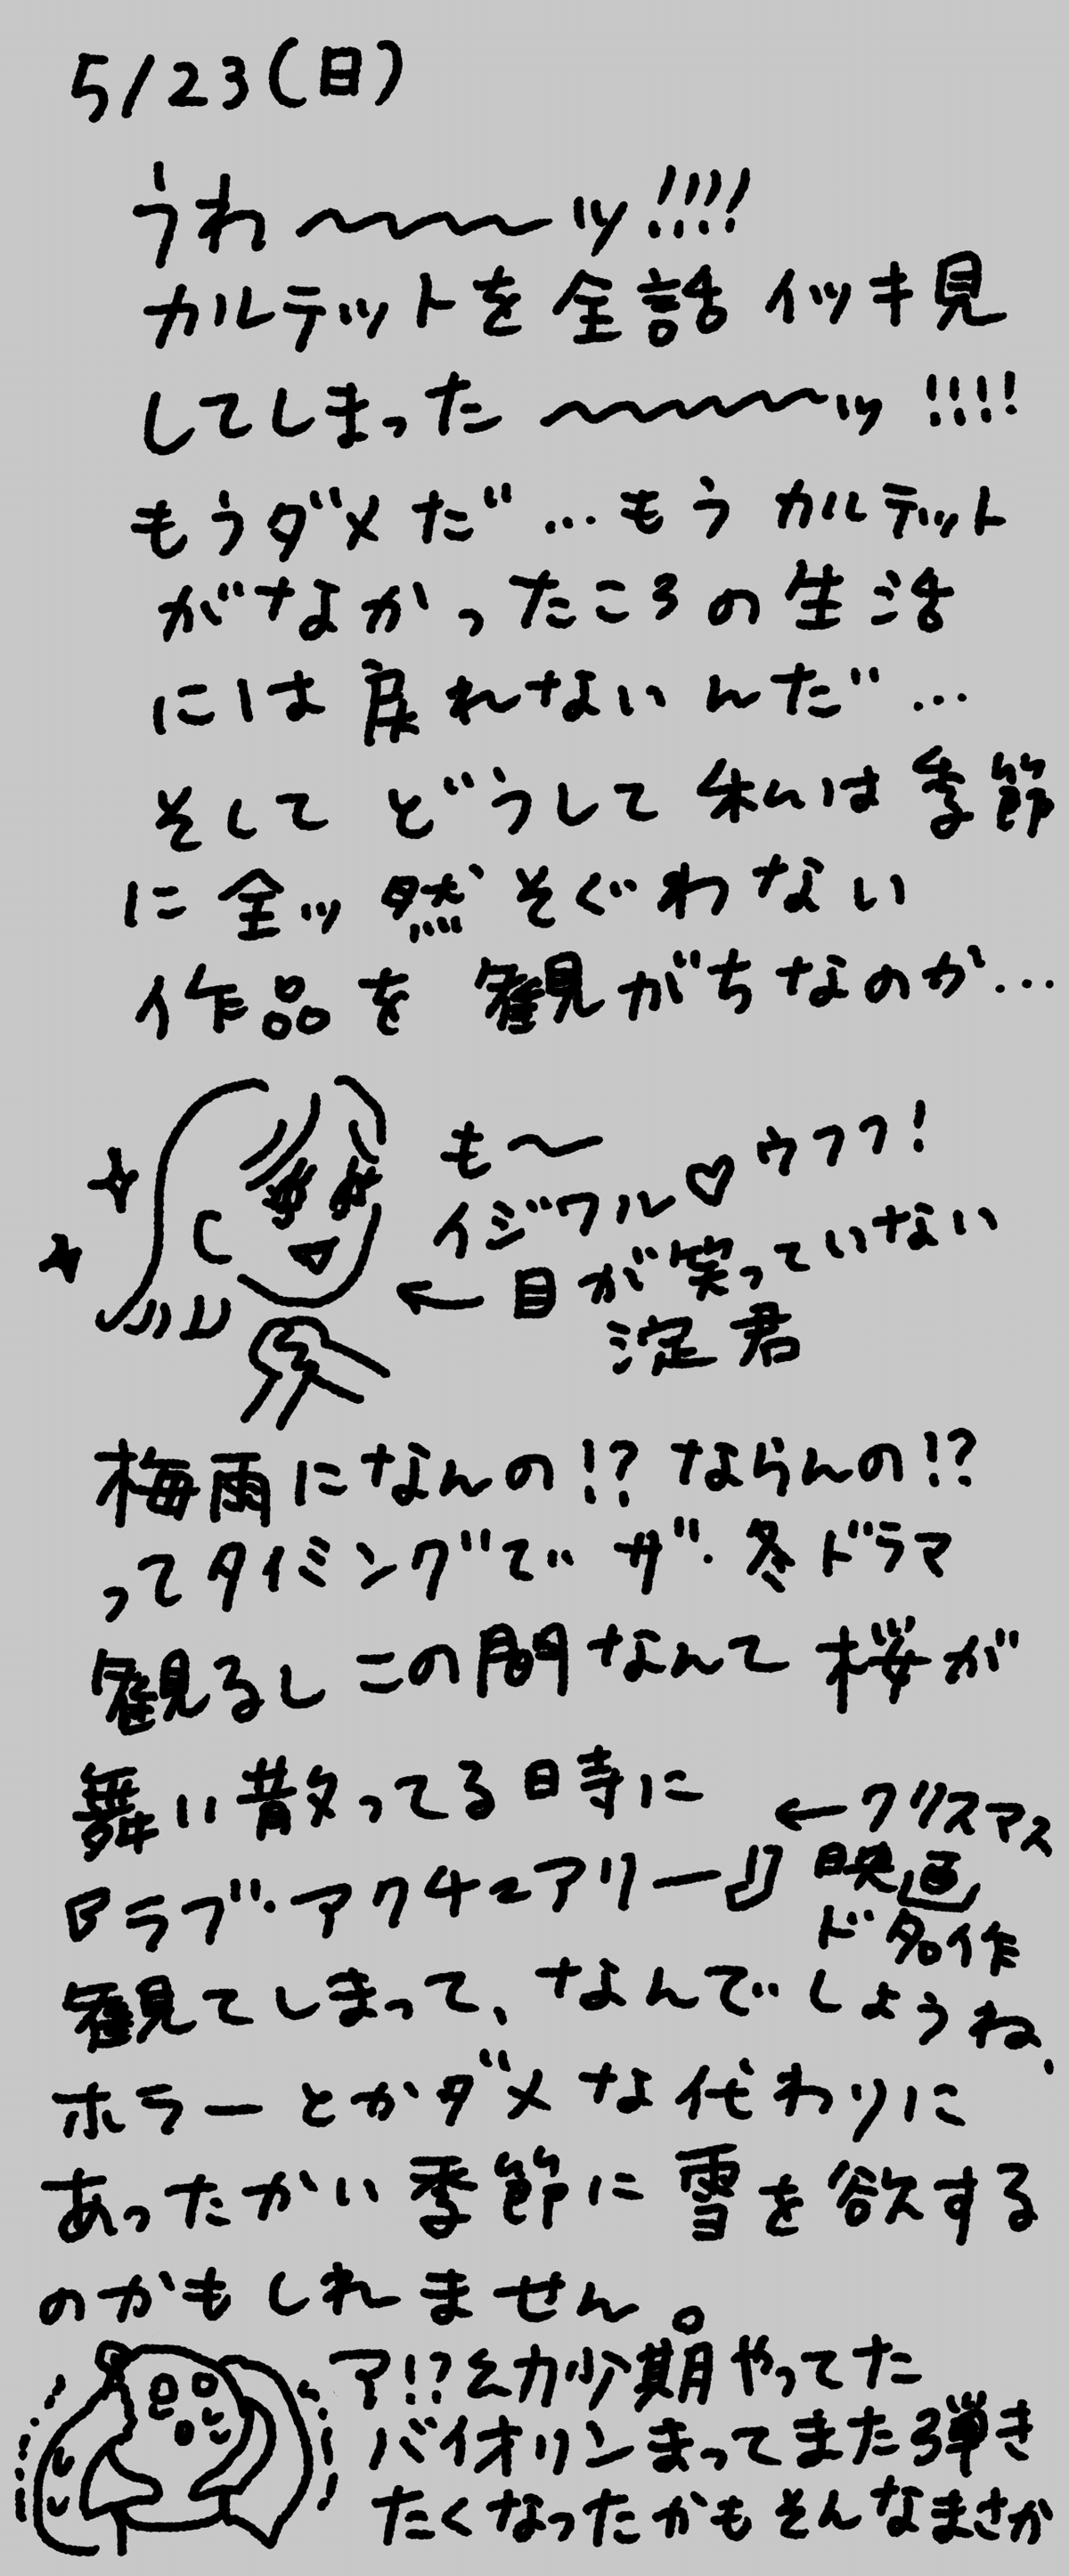 5/23(日)
うわ〜〜〜ッ!!!!
カルテットを全話イッキ見
してしまった〜〜〜〜ッ!!!!
もうダメだ…もうカルテット
がなかったころの生活
には戻れないんだ…
そしてどうして私は季節
に全ッ然そぐわない
作品を観がちなのか…
も〜
イジワル♡ウフフ!
←目が笑っていない
淀君
梅雨になんの!?ならんの!?
ってタイミングでザ・冬ドラマ
観るしこの間なんて桜が
舞い散ってる時に
『ラブ・アクチュアリー』
←クリスマス
映画
ド名作
観てしまって、なんでしょうね、
ホラーとかダメな代わりに
あったかい季節に雪を欲する
のかもしれません。
ア!?幼少期やってた
バイオリンまってまた弾き
たくなったかもそんなまさか